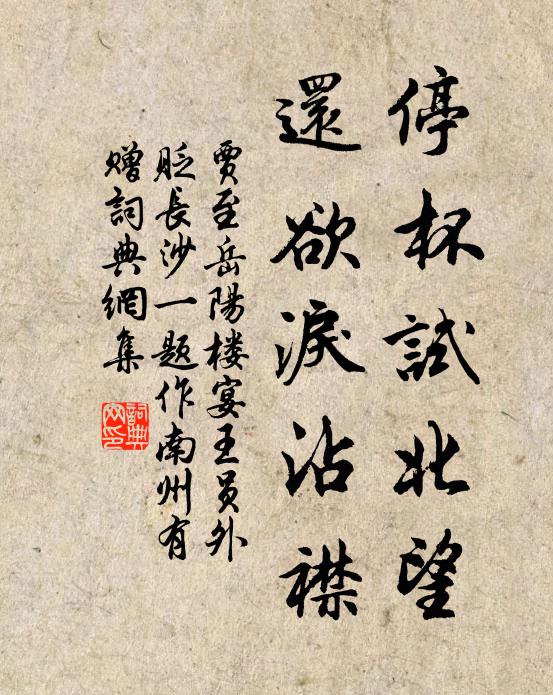 停杯試北望
還欲淚沾襟
賈至岳陽楼宴王员外
貶長沙一题作南州有
赠詞典網集
詞典
网印